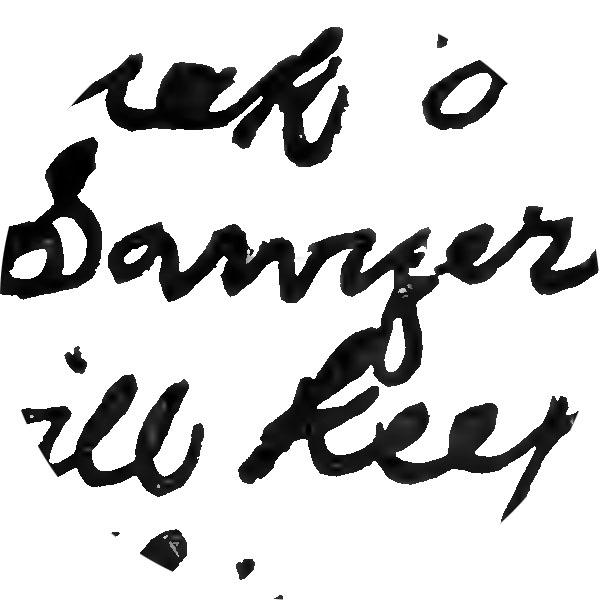 Sawyer
ill keep